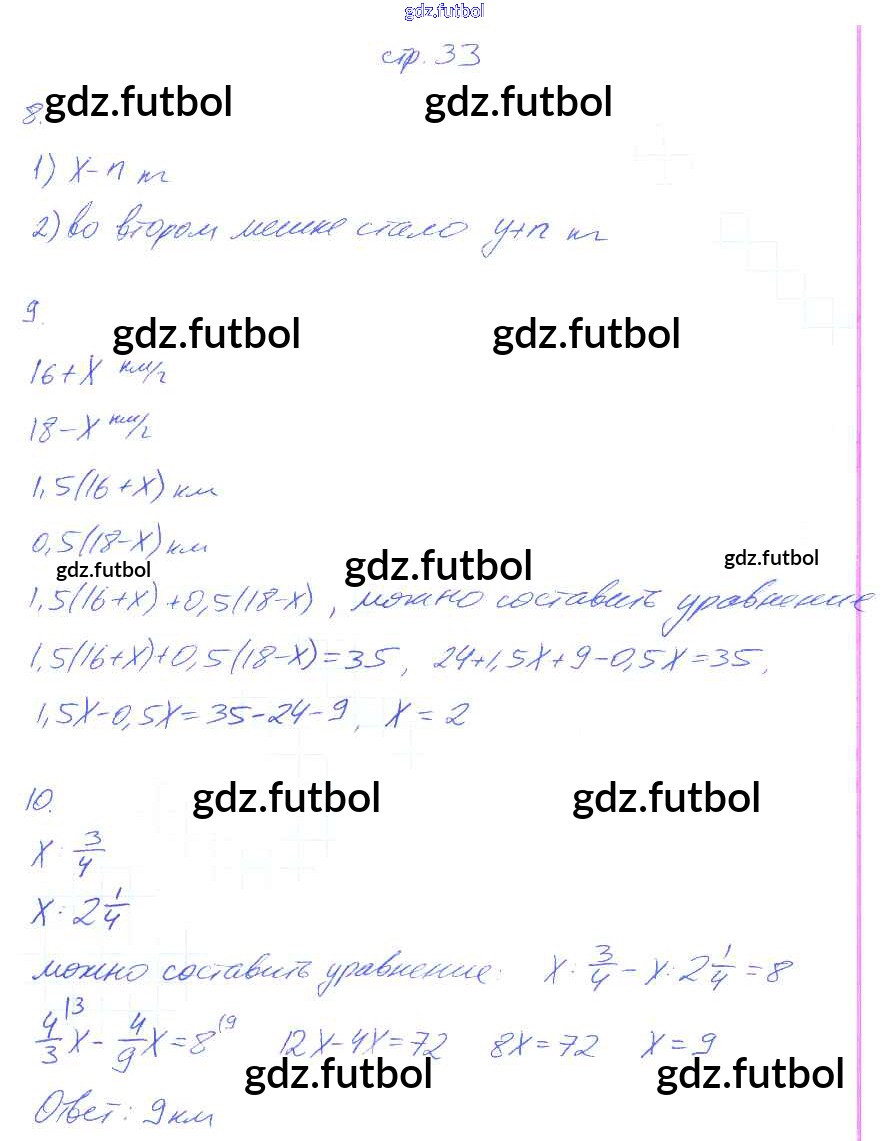 gdz.futbol
стр. 33
8. gdz.futbol gdz.futbol
1) x-n кг
2) во втором мешке стало y+n кг
9.
gdz.futbol gdz.futbol
16+x км/ч
18-x км/ч
1,5(16+x) км
0,5(18-x) км
gdz.futbol gdz.futbol gdz.futbol
1,5(16+x)+0,5(18-x), можно составить уравнение
1,5(16+x)+0,5(18-x)=35, 24+1,5x+9-0,5x=35,
1,5x-0,5x=35-24-9, x=2
10. gdz.futbol gdz.futbol
x : 3/4
x : 2 1/4
можно составить уравнение: x : 3/4 - x : 2 1/4 = 8
4/3 |3 x - 4/9 x = 8 |9 12x-4x=72 8x=72 x=9
gdz.futbol gdz.futbol
Ответ: 9 км